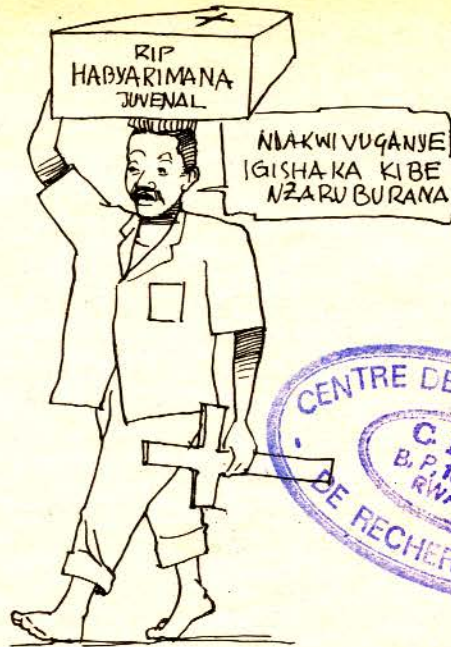 RIP
HABYARIMANA
JUVENAL
NDAKWIVUGANYE
IGISHAKA KIBE
NZARUBURANA
CENTRE DE
B.P.
DE